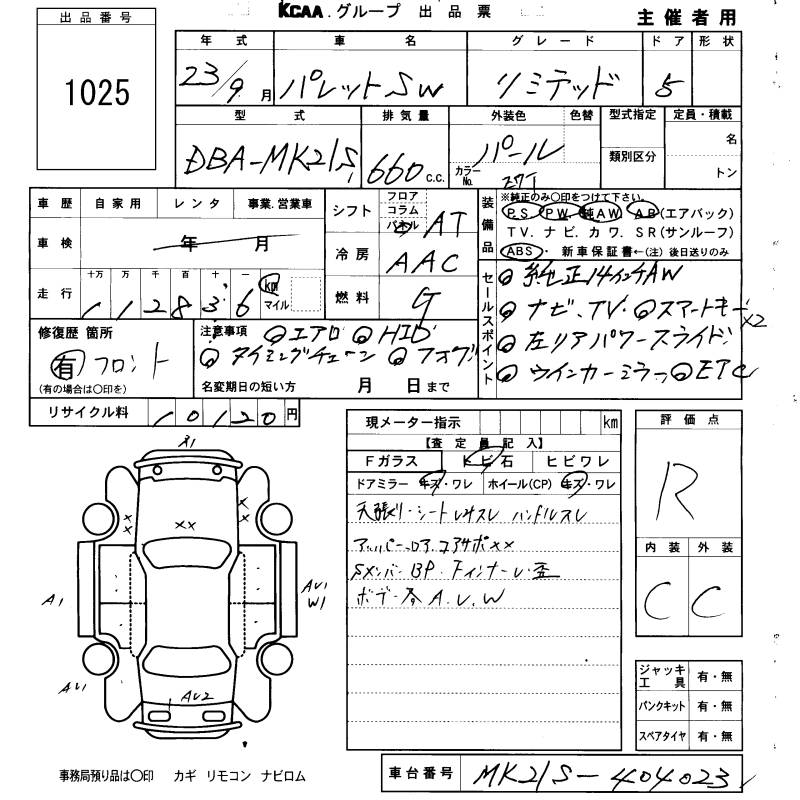 KCAA.グループ 出品票
主催者用
出品番号
1025
年式 車名 グレード ドア 形状
23/9月 パレットSW リミテッド 5
型式 排気量 外装色 色替 型式指定 定員・積載
DBA-MK21S 660 c.c. パール カラーNo. Z7T 類別区分 名 トン
車歴 自家用 レンタ 事業.営業車
車検 年 月
走行 十万 万 千 百 十 一
112836 km マイル
シフト フロア コラム パネル AT
冷房 AAC
燃料 G
装備品 ※純正のみ〇印をつけて下さい。
PS PW 純AW AB(エアバック)
TV. ナビ. カワ. SR(サンルーフ)
ABS・新車保証書←(注)後日送りのみ
セールスポイント
◎純正14インチAW
◎ナビ、TV・◎スマートキーx2
◎左リアパワースライド
◎ウインカーミラー◎ETC
修復歴 箇所
有 フロント
(有の場合は〇印を)
注意事項 ◎エアロ ◎HID
◎タイミングチェーン ◎フォグ
名変期日の短い方 月 日まで
リサイクル料 10120円
現メーター指示 km
【査定員記入】
Fガラス トビ石 ヒビワレ
ドアミラー キズ・ワレ ホイール(CP) キズ・ワレ
天張り・シートレヤスレ ハンドルスレ
アッパー・ロア.コアサポxx
Sメンバー BP.Fインナーレ歪
ボデー各A.U.W
評価点
R
内装 外装
C C
ジャッキ工具 有・無
パンクキット 有・無
スペアタイヤ 有・無
A1
xx
x
x
x
x
A1
AU1
W1
AU1
AU2
事務局預り品は〇印 カギ リモコン ナビロム
車台番号 MK21S-404023